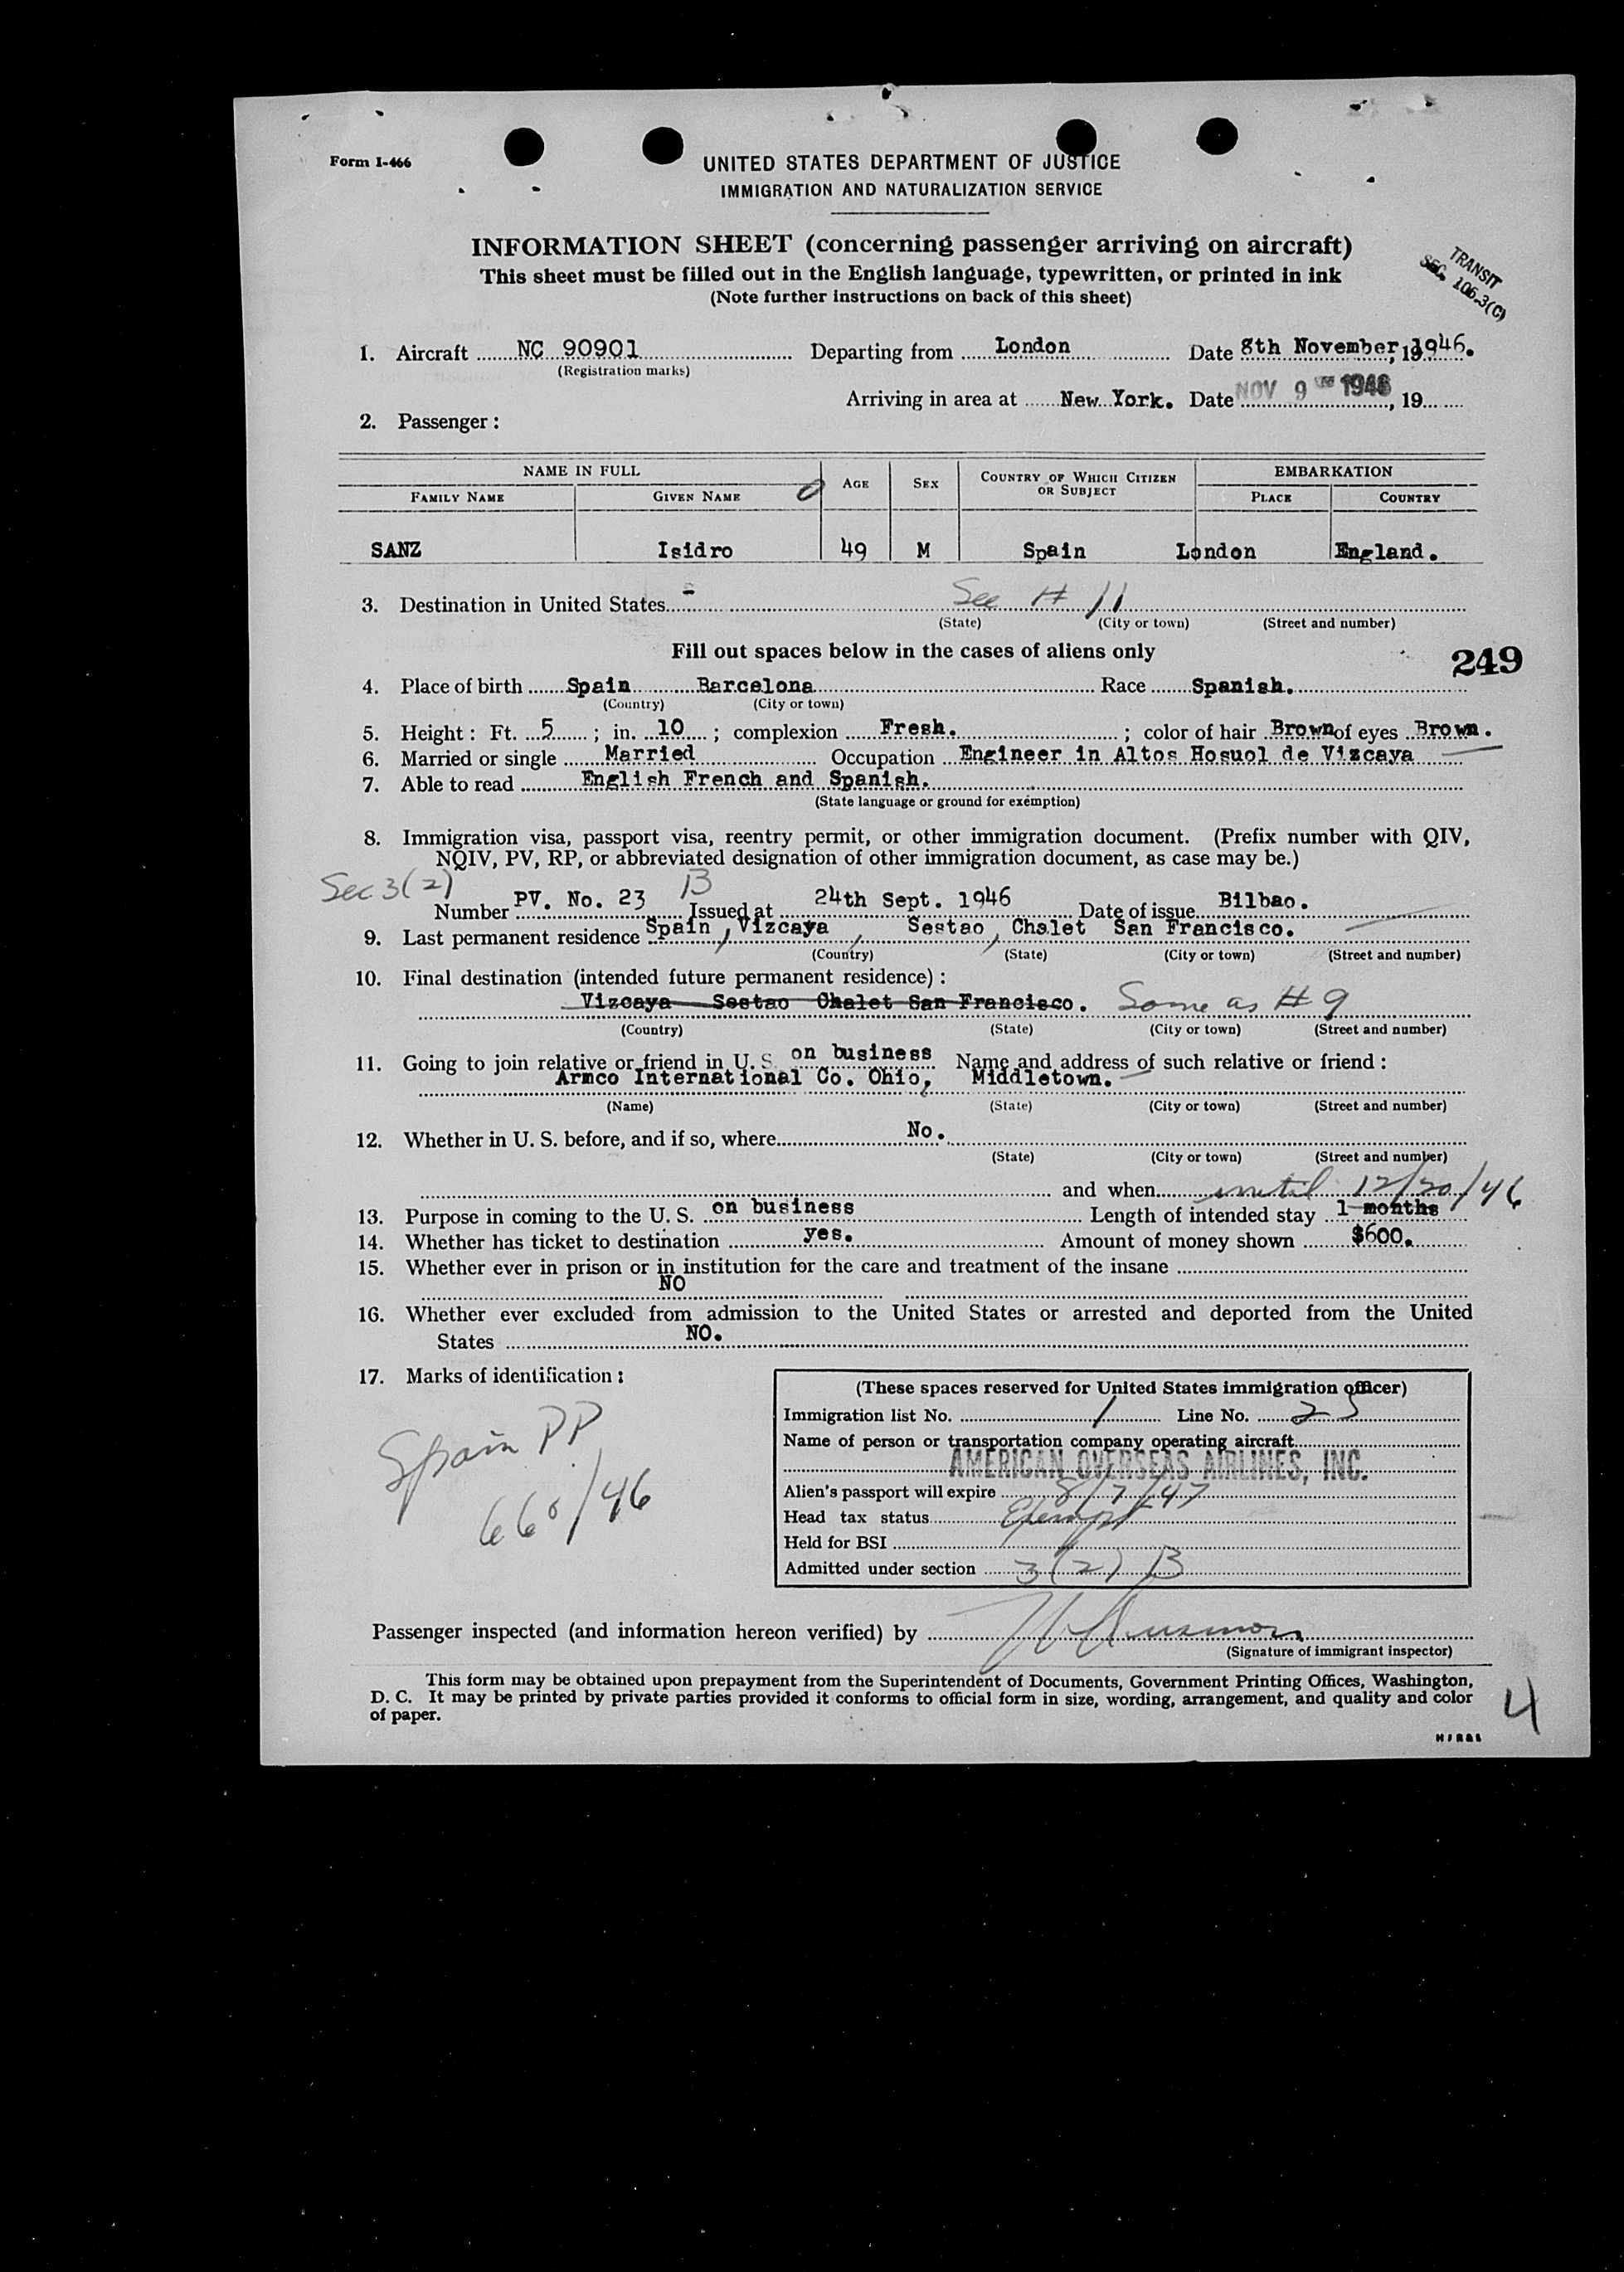 Form I-466
UNITED STATES DEPARTMENT OF JUSTICE
IMMIGRATION AND NATURALIZATION SERVICE
INFORMATION SHEET (concerning passenger arriving on aircraft)
This sheet must be filled out in the English language, typewritten, or printed in ink
(Note further instructions on back of this sheet)
TRANSIT
SEC. 106.3(C)
1. Aircraft NC 90901 Departing from London Date 8th November, 1946.
(Registration marks)
Arriving in area at New York. Date NOV 9 1946, 19
2. Passenger:
NAME IN FULL AGE SEX COUNTRY OF WHICH CITIZEN OR SUBJECT EMBARKATION
FAMILY NAME GIVEN NAME PLACE COUNTRY
SANZ Isidro 49 M Spain London England.
3. Destination in United States See # 11
(State) (City or town) (Street and number)
Fill out spaces below in the cases of aliens only
249
4. Place of birth Spain Barcelona Race Spanish.
(Country) (City or town)
5. Height: Ft. 5; in. 10; complexion Fresh.; color of hair Brown of eyes Brown.
6. Married or single Married Occupation Engineer in Altos Hosuol de Vizcaya
7. Able to read English French and Spanish.
(State language or ground for exemption)
8. Immigration visa, passport visa, reentry permit, or other immigration document. (Prefix number with QIV,
NQIV, PV, RP, or abbreviated designation of other immigration document, as case may be.)
Sec 3(2) B
Number PV. No. 23 Issued at 24th Sept. 1946 Date of issue Bilbao.
9. Last permanent residence Spain, Vizcaya, Sestao, Chalet San Francisco.
(Country) (State) (City or town) (Street and number)
10. Final destination (intended future permanent residence):
Vizcaya Sestao Chalet San Francisco. Same as # 9
(Country) (State) (City or town) (Street and number)
11. Going to join relative or friend in U. S. on business Name and address of such relative or friend:
Armco International Co. Ohio, Middletown.
(Name) (State) (City or town) (Street and number)
12. Whether in U. S. before, and if so, where No.
(State) (City or town) (Street and number)
and when until 12/20/46
13. Purpose in coming to the U. S. on business Length of intended stay 1 months
14. Whether has ticket to destination yes. Amount of money shown $600.
15. Whether ever in prison or in institution for the care and treatment of the insane
NO
16. Whether ever excluded from admission to the United States or arrested and deported from the United
States NO.
17. Marks of identification:
Spain PP
660/46
(These spaces reserved for United States immigration officer)
Immigration list No. 1 Line No. 25
Name of person or transportation company operating aircraft
AMERICAN OVERSEAS AIRLINES, INC.
Alien's passport will expire 8/7/47
Head tax status Exempt
Held for BSI
Admitted under section 3(2) B
Passenger inspected (and information hereon verified) by
(Signature of immigrant inspector)
This form may be obtained upon prepayment from the Superintendent of Documents, Government Printing Offices, Washington,
D. C. It may be printed by private parties provided it conforms to official form in size, wording, arrangement, and quality and color
of paper.
4